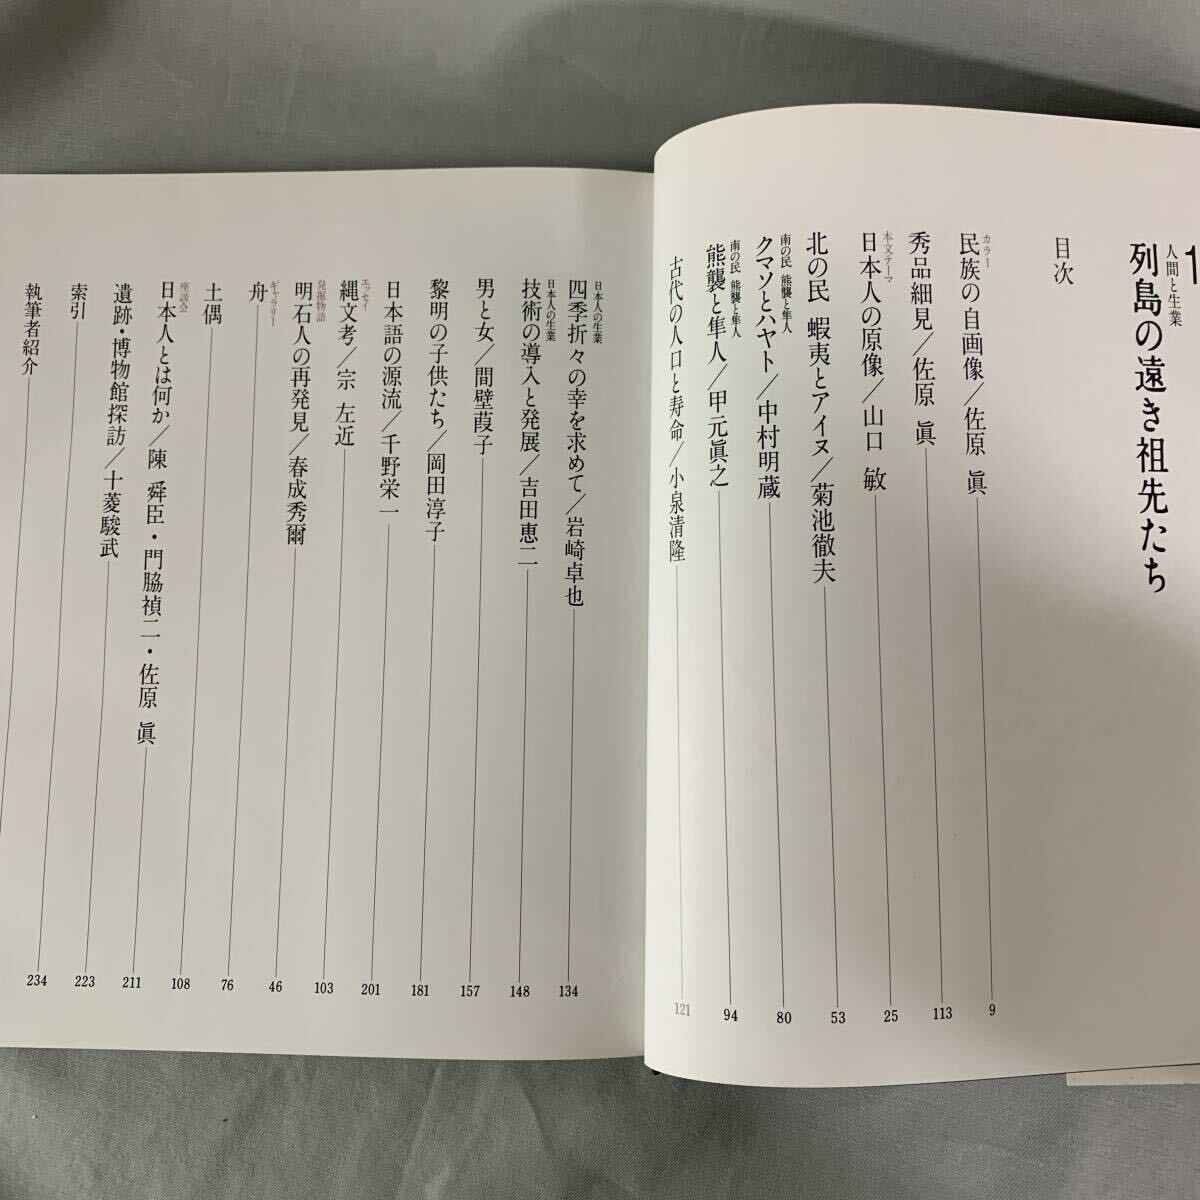 1
人間と生業
列島の遠き祖先たち
目次
カラー
民族の自画像／佐原 眞 9
秀品細見／佐原 眞 113
本文テーマ
日本人の原像／山口 敏 25
北の民 蝦夷とアイヌ／菊池徹夫 53
南の民 熊襲と隼人
クマソとハヤト／中村明蔵 80
南の民 熊襲と隼人
熊襲と隼人／甲元眞之 94
古代の人口と寿命／小泉清隆 121
日本人の生業
四季折々の幸を求めて／岩崎卓也 134
日本人の生業
技術の導入と発展／吉田恵二 148
男と女／間壁葭子 157
黎明の子供たち／岡田淳子 181
日本語の源流／千野栄一 201
エッセイ
縄文考／宗 左近 103
発掘物語
明石人の再発見／春成秀爾 46
ギャラリー
舟 76
土偶 108
座談会
日本人とは何か／陳 舜臣・門脇禎二・佐原 眞 211
遺跡・博物館探訪／十菱駿武 223
索引 234
執筆者紹介